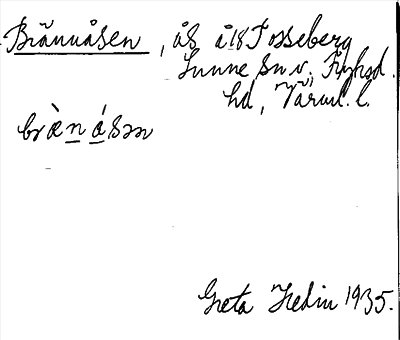 Brännåsen, ås å 18 Tosseberg
Sunne sn v. Fryksd.
hd, Värml. l.
bràn̲á̲sən
Greta Hedin 1935.